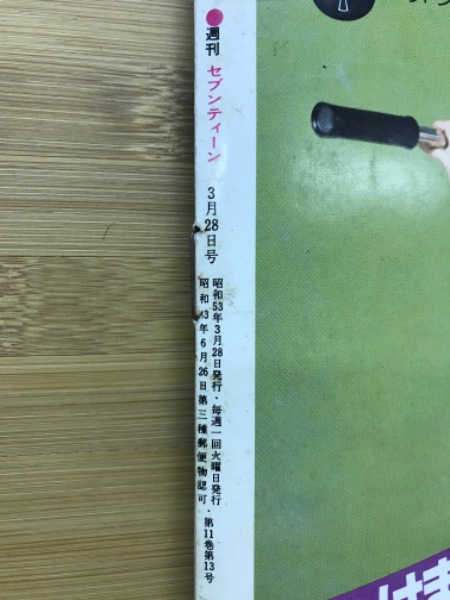 週刊 セブンティーン 3月28日号
昭和53年3月28日発行・毎週一回火曜日発行
昭和43年6月26日第三種郵便物認可・第11巻第13号